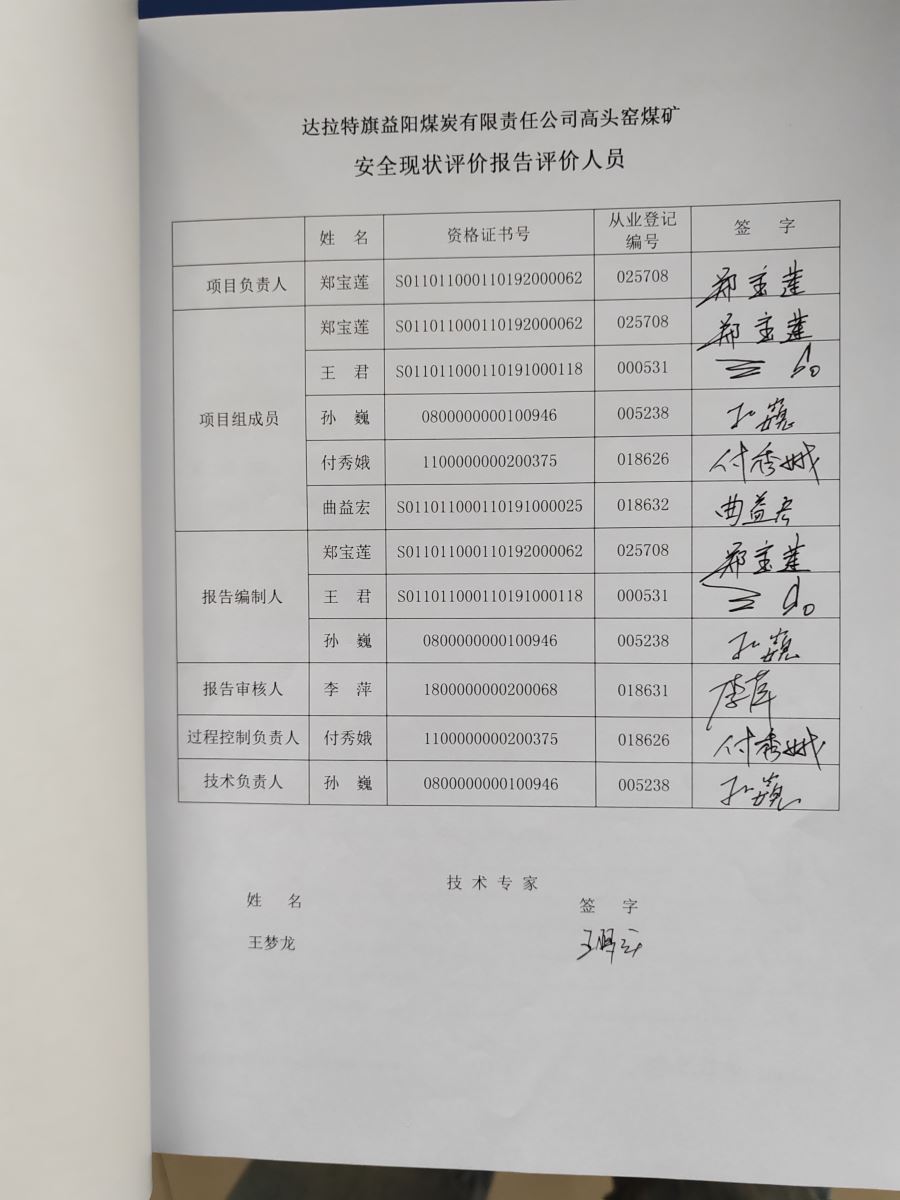 达拉特旗益阳煤炭有限责任公司高头窑煤矿
安全现状评价报告评价人员
姓 名 资格证书号 从业登记编号 签 字
项目负责人 郑宝莲 S011011000110192000062 025708 郑宝莲
项目组成员 郑宝莲 S011011000110192000062 025708 郑宝莲
王 君 S011011000110191000118 000531
孙 巍 0800000000100946 005238 孙巍
付秀娥 1100000000200375 018626 付秀娥
曲益宏 S011011000110191000025 018632 曲益宏
报告编制人 郑宝莲 S011011000110192000062 025708 郑宝莲
王 君 S011011000110191000118 000531
孙 巍 0800000000100946 005238 孙巍
报告审核人 李 萍 1800000000200068 018631 李萍
过程控制负责人 付秀娥 1100000000200375 018626 付秀娥
技术负责人 孙 巍 0800000000100946 005238 孙巍
技 术 专 家
姓 名 签 字
王梦龙